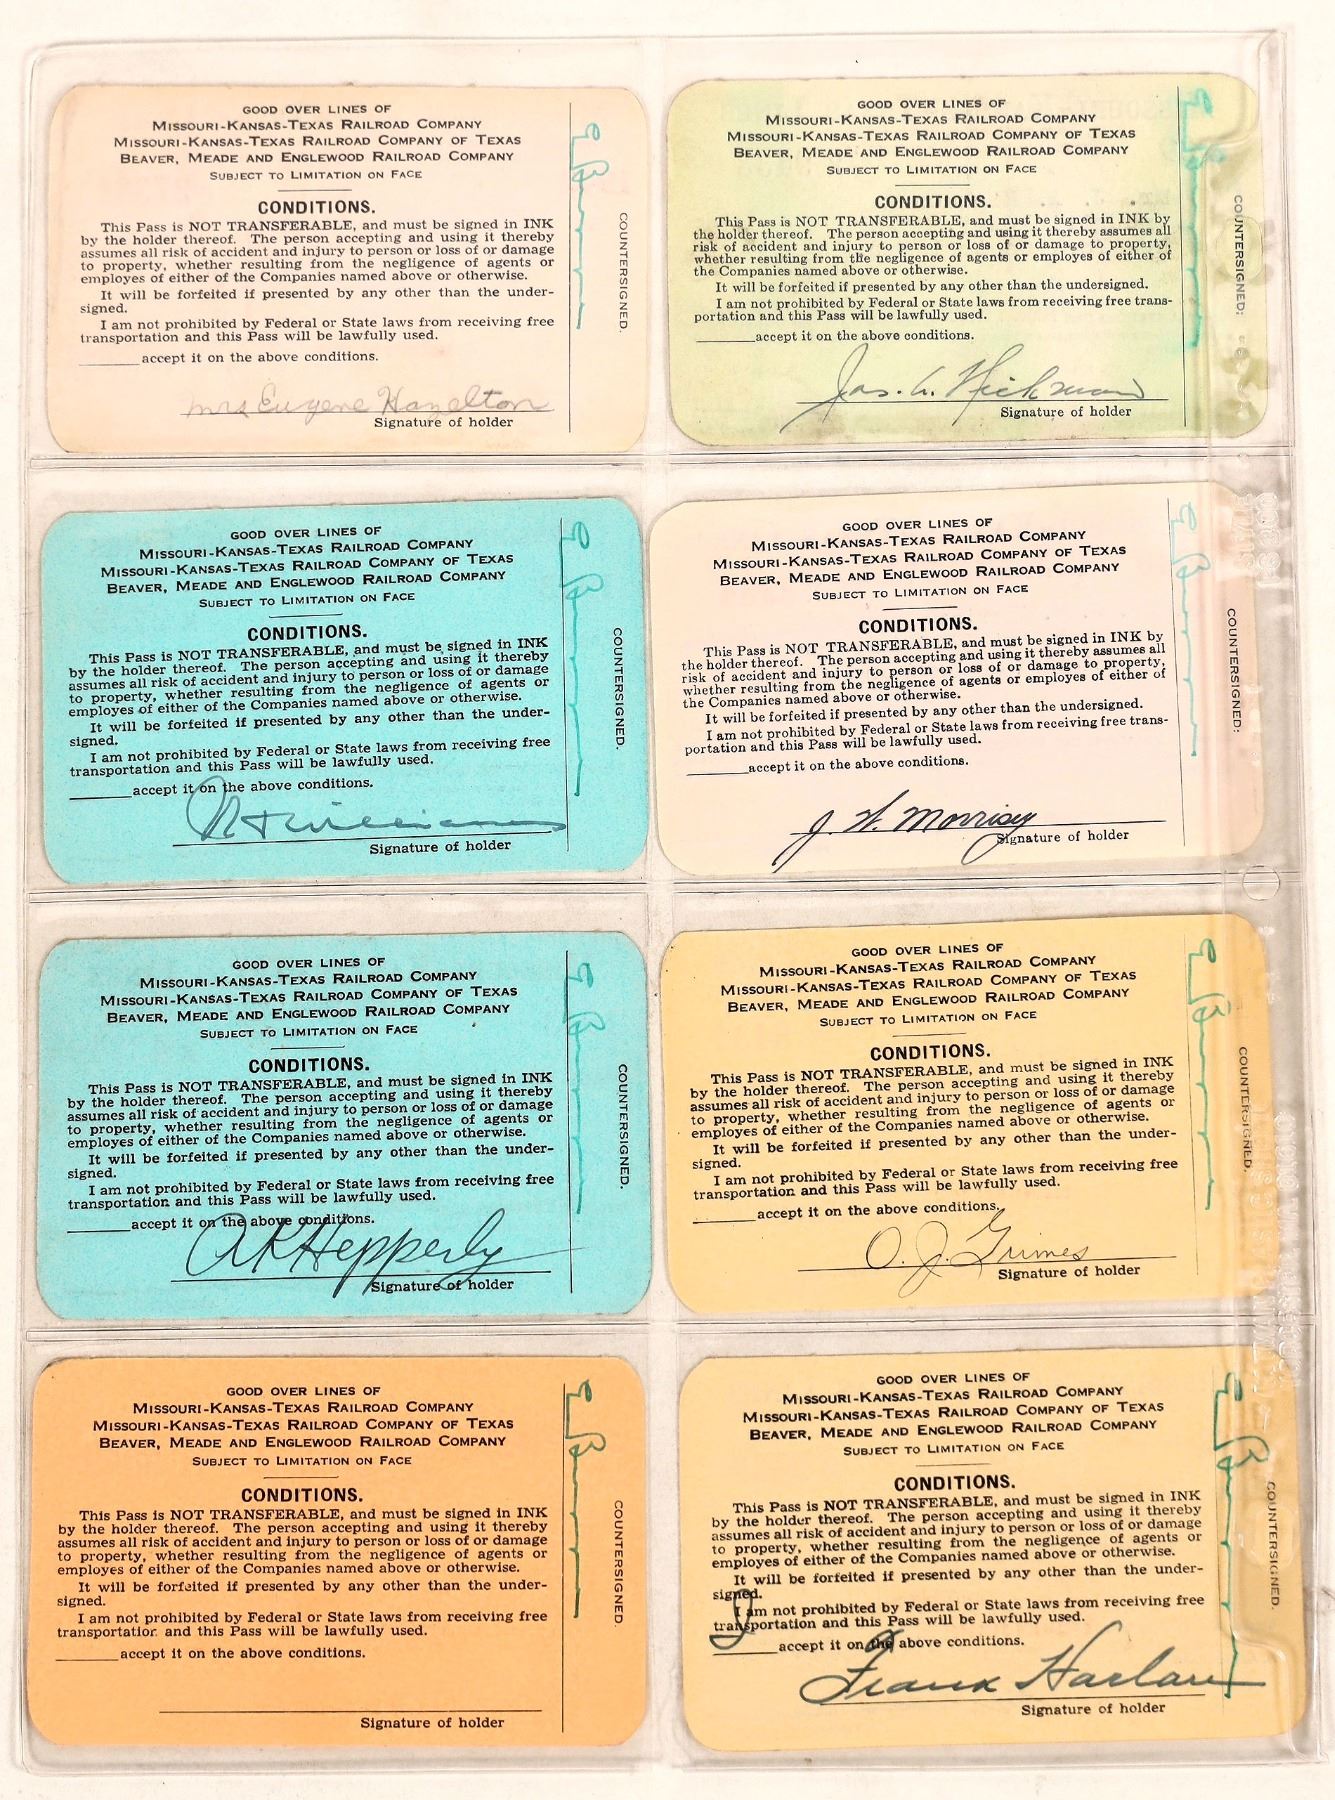 GOOD OVER LINES OF
MISSOURI-KANSAS-TEXAS RAILROAD COMPANY
MISSOURI-KANSAS-TEXAS RAILROAD COMPANY OF TEXAS
BEAVER, MEADE AND ENGLEWOOD RAILROAD COMPANY
SUBJECT TO LIMITATION ON FACE
CONDITIONS.
This Pass is NOT TRANSFERABLE, and must be signed in INK
by the holder thereof. The person accepting and using it thereby
assumes all risk of accident and injury to person or loss of or damage
to property, whether resulting from the negligence of agents or
employes of either of the Companies named above or otherwise.
It will be forfeited if presented by any other than the under-
signed.
I am not prohibited by Federal or State laws from receiving free
transportation and this Pass will be lawfully used.
______accept it on the above conditions.
Mrs Eugene Hazelton
Signature of holder
COUNTERSIGNED.
GOOD OVER LINES OF
MISSOURI-KANSAS-TEXAS RAILROAD COMPANY
MISSOURI-KANSAS-TEXAS RAILROAD COMPANY OF TEXAS
BEAVER, MEADE AND ENGLEWOOD RAILROAD COMPANY
SUBJECT TO LIMITATION ON FACE
CONDITIONS.
This Pass is NOT TRANSFERABLE, and must be signed in INK by
the holder thereof. The person accepting and using it thereby assumes all
risk of accident and injury to person or loss of or damage to property,
whether resulting from the negligence of agents or employes of either of
the Companies named above or otherwise.
It will be forfeited if presented by any other than the undersigned.
I am not prohibited by Federal or State laws from receiving free trans-
portation and this Pass will be lawfully used.
______accept it on the above conditions.
Jas. A. Hickman
Signature of holder
COUNTERSIGNED:
GOOD OVER LINES OF
MISSOURI-KANSAS-TEXAS RAILROAD COMPANY
MISSOURI-KANSAS-TEXAS RAILROAD COMPANY OF TEXAS
BEAVER, MEADE AND ENGLEWOOD RAILROAD COMPANY
SUBJECT TO LIMITATION ON FACE
CONDITIONS.
This Pass is NOT TRANSFERABLE, and must be signed in INK
by the holder thereof. The person accepting and using it thereby
assumes all risk of accident and injury to person or loss of or damage
to property, whether resulting from the negligence of agents or
employes of either of the Companies named above or otherwise.
It will be forfeited if presented by any other than the under-
signed.
I am not prohibited by Federal or State laws from receiving free
transportation and this Pass will be lawfully used.
______accept it on the above conditions.
Williams
Signature of holder
COUNTERSIGNED.
GOOD OVER LINES OF
MISSOURI-KANSAS-TEXAS RAILROAD COMPANY
MISSOURI-KANSAS-TEXAS RAILROAD COMPANY OF TEXAS
BEAVER, MEADE AND ENGLEWOOD RAILROAD COMPANY
SUBJECT TO LIMITATION ON FACE
CONDITIONS.
This Pass is NOT TRANSFERABLE, and must be signed in INK by
the holder thereof. The person accepting and using it thereby assumes all
risk of accident and injury to person or loss of or damage to property,
whether resulting from the negligence of agents or employes of either of
the Companies named above or otherwise.
It will be forfeited if presented by any other than the undersigned.
I am not prohibited by Federal or State laws from receiving free trans-
portation and this Pass will be lawfully used.
______accept it on the above conditions.
J. W. Morrisy
Signature of holder
COUNTERSIGNED:
GOOD OVER LINES OF
MISSOURI-KANSAS-TEXAS RAILROAD COMPANY
MISSOURI-KANSAS-TEXAS RAILROAD COMPANY OF TEXAS
BEAVER, MEADE AND ENGLEWOOD RAILROAD COMPANY
SUBJECT TO LIMITATION ON FACE
CONDITIONS.
This Pass is NOT TRANSFERABLE, and must be signed in INK
by the holder thereof. The person accepting and using it thereby
assumes all risk of accident and injury to person or loss of or damage
to property, whether resulting from the negligence of agents or
employes of either of the Companies named above or otherwise.
It will be forfeited if presented by any other than the under-
signed.
I am not prohibited by Federal or State laws from receiving free
transportation and this Pass will be lawfully used.
______accept it on the above conditions.
A K Hepperly
Signature of holder
COUNTERSIGNED.
GOOD OVER LINES OF
MISSOURI-KANSAS-TEXAS RAILROAD COMPANY
MISSOURI-KANSAS-TEXAS RAILROAD COMPANY OF TEXAS
BEAVER, MEADE AND ENGLEWOOD RAILROAD COMPANY
SUBJECT TO LIMITATION ON FACE
CONDITIONS.
This Pass is NOT TRANSFERABLE, and must be signed in INK
by the holder thereof. The person accepting and using it thereby
assumes all risk of accident and injury to person or loss of or damage
to property, whether resulting from the negligence of agents or
employes of either of the Companies named above or otherwise.
It will be forfeited if presented by any other than the under-
signed.
I am not prohibited by Federal or State laws from receiving free
transportation and this Pass will be lawfully used.
______accept it on the above conditions.
O. J. Grimes
Signature of holder
COUNTERSIGNED.
GOOD OVER LINES OF
MISSOURI-KANSAS-TEXAS RAILROAD COMPANY
MISSOURI-KANSAS-TEXAS RAILROAD COMPANY OF TEXAS
BEAVER, MEADE AND ENGLEWOOD RAILROAD COMPANY
SUBJECT TO LIMITATION ON FACE
CONDITIONS.
This Pass is NOT TRANSFERABLE, and must be signed in INK
by the holder thereof. The person accepting and using it thereby
assumes all risk of accident and injury to person or loss of or damage
to property, whether resulting from the negligence of agents or
employes of either of the Companies named above or otherwise.
It will be forfeited if presented by any other than the under-
signed.
I am not prohibited by Federal or State laws from receiving free
transportation and this Pass will be lawfully used.
______accept it on the above conditions.
Signature of holder
COUNTERSIGNED.
GOOD OVER LINES OF
MISSOURI-KANSAS-TEXAS RAILROAD COMPANY
MISSOURI-KANSAS-TEXAS RAILROAD COMPANY OF TEXAS
BEAVER, MEADE AND ENGLEWOOD RAILROAD COMPANY
SUBJECT TO LIMITATION ON FACE
CONDITIONS.
This Pass is NOT TRANSFERABLE, and must be signed in INK
by the holder thereof. The person accepting and using it thereby
assumes all risk of accident and injury to person or loss of or damage
to property, whether resulting from the negligence of agents or
employes of either of the Companies named above or otherwise.
It will be forfeited if presented by any other than the under-
signed.
I am not prohibited by Federal or State laws from receiving free
transportation and this Pass will be lawfully used.
I accept it on the above conditions.
Frank Harlan
Signature of holder
COUNTERSIGNED.